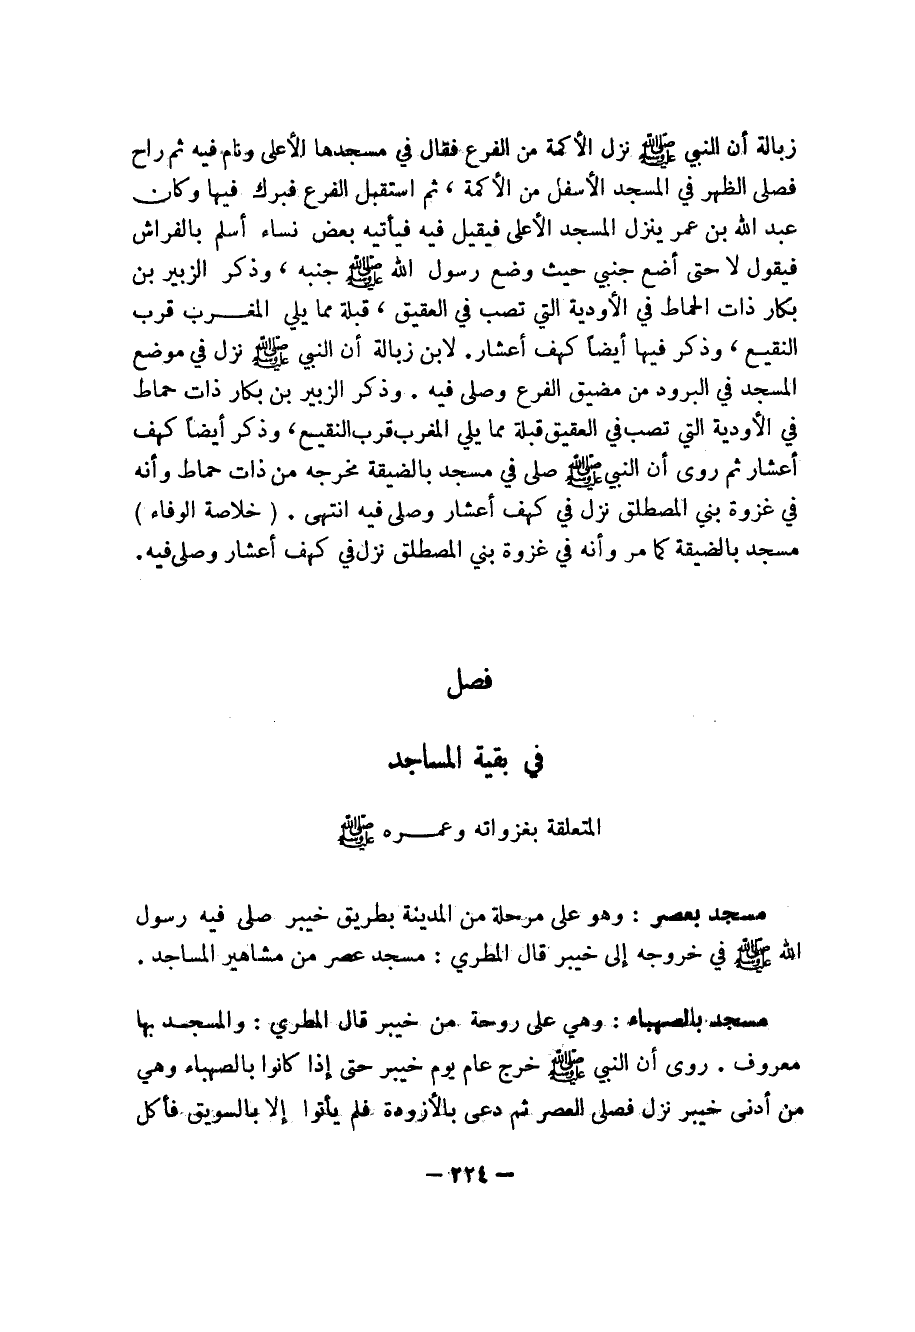 زبالة أن النبي ﷺ نزل الأكمة من الفرع فقال في مسجدها الأعلى ونام فيه ثم راح
فصلى الظهر في المسجد الأسفل من الأكمة ، ثم استقبل الفرع فبرك فيها وكان
عبد الله بن عمر ينزل المسجد الأعلى فيقيل فيه فيأتيه بعض نساء أسلم بالفراش
فيقول لا حتى أضع جنبي حيث وضع رسول الله ﷺ جنبه ، وذكر الزبير بن
بكار ذات الحماط في الأودية التي تصب في العقيق ، قبلة مما يلي المغرب قرب
النقيع ، وذكر فيها أيضاً كهف أعشار. لابن زبالة أن النبي ﷺ نزل في موضع
المسجد في البرود من مضيق الفرع وصلى فيه . وذكر الزبير بن بكار ذات حماط
في الأودية التي تصب في العقيق قبلة مما يلي المغرب قرب النقيع ، وذكر أيضاً كهف
أعشار ثم روى أن النبي ﷺ صلى في مسجد بالضيقة مخرجه من ذات حماط وأنه
في غزوة بني المصطلق نزل في كهف أعشار وصلى فيه انتهى . ( خلاصة الوفاء )
مسجد بالضيقة كما مر وأنه في غزوة بني المصطلق نزل في كهف أعشار وصلى فيه.
فصل
في بقية المساجد
المتعلقة بغزواته وعمره ﷺ
مسجد بعصر : وهو على مرحلة من المدينة بطريق خيبر صلى فيه رسول
الله ﷺ في خروجه إلى خيبر قال المطري : مسجد عصر من مشاهير المساجد .
مسجد بالصهباء : وهي على روحة من خيبر قال المطري : والمسجد بها
معروف . روى أن النبي ﷺ خرج عام يوم خيبر حتى إذا كانوا بالصهباء وهي
من أدنى خيبر نزل فصلى العصر ثم دعى بالأزودة فلم يأتوا إلا بالسويق فأكل
– ٢٢٤ –